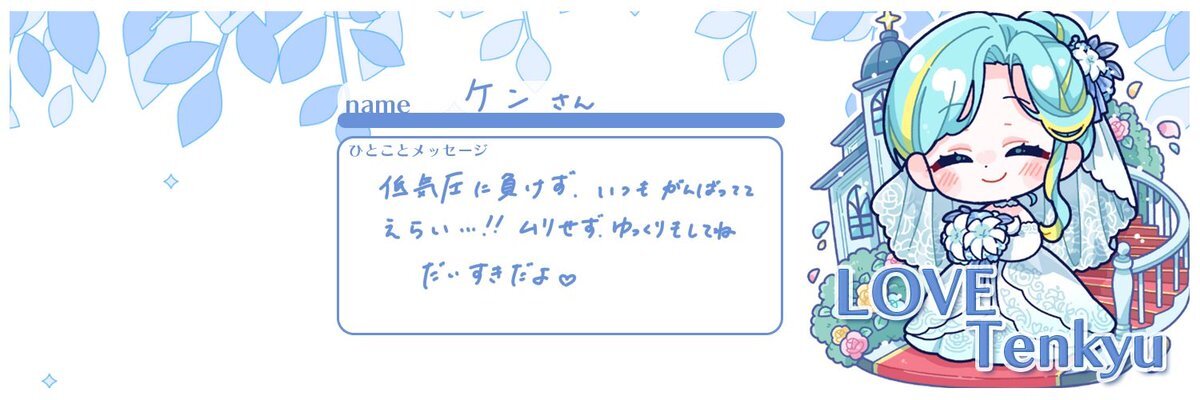 name ケンさん
ひとことメッセージ
低気圧に負けず、いつもがんばってて
えらい…!! ムリせず、ゆっくりもしてね
だいすきだよ♡
LOVE
Tenkyu